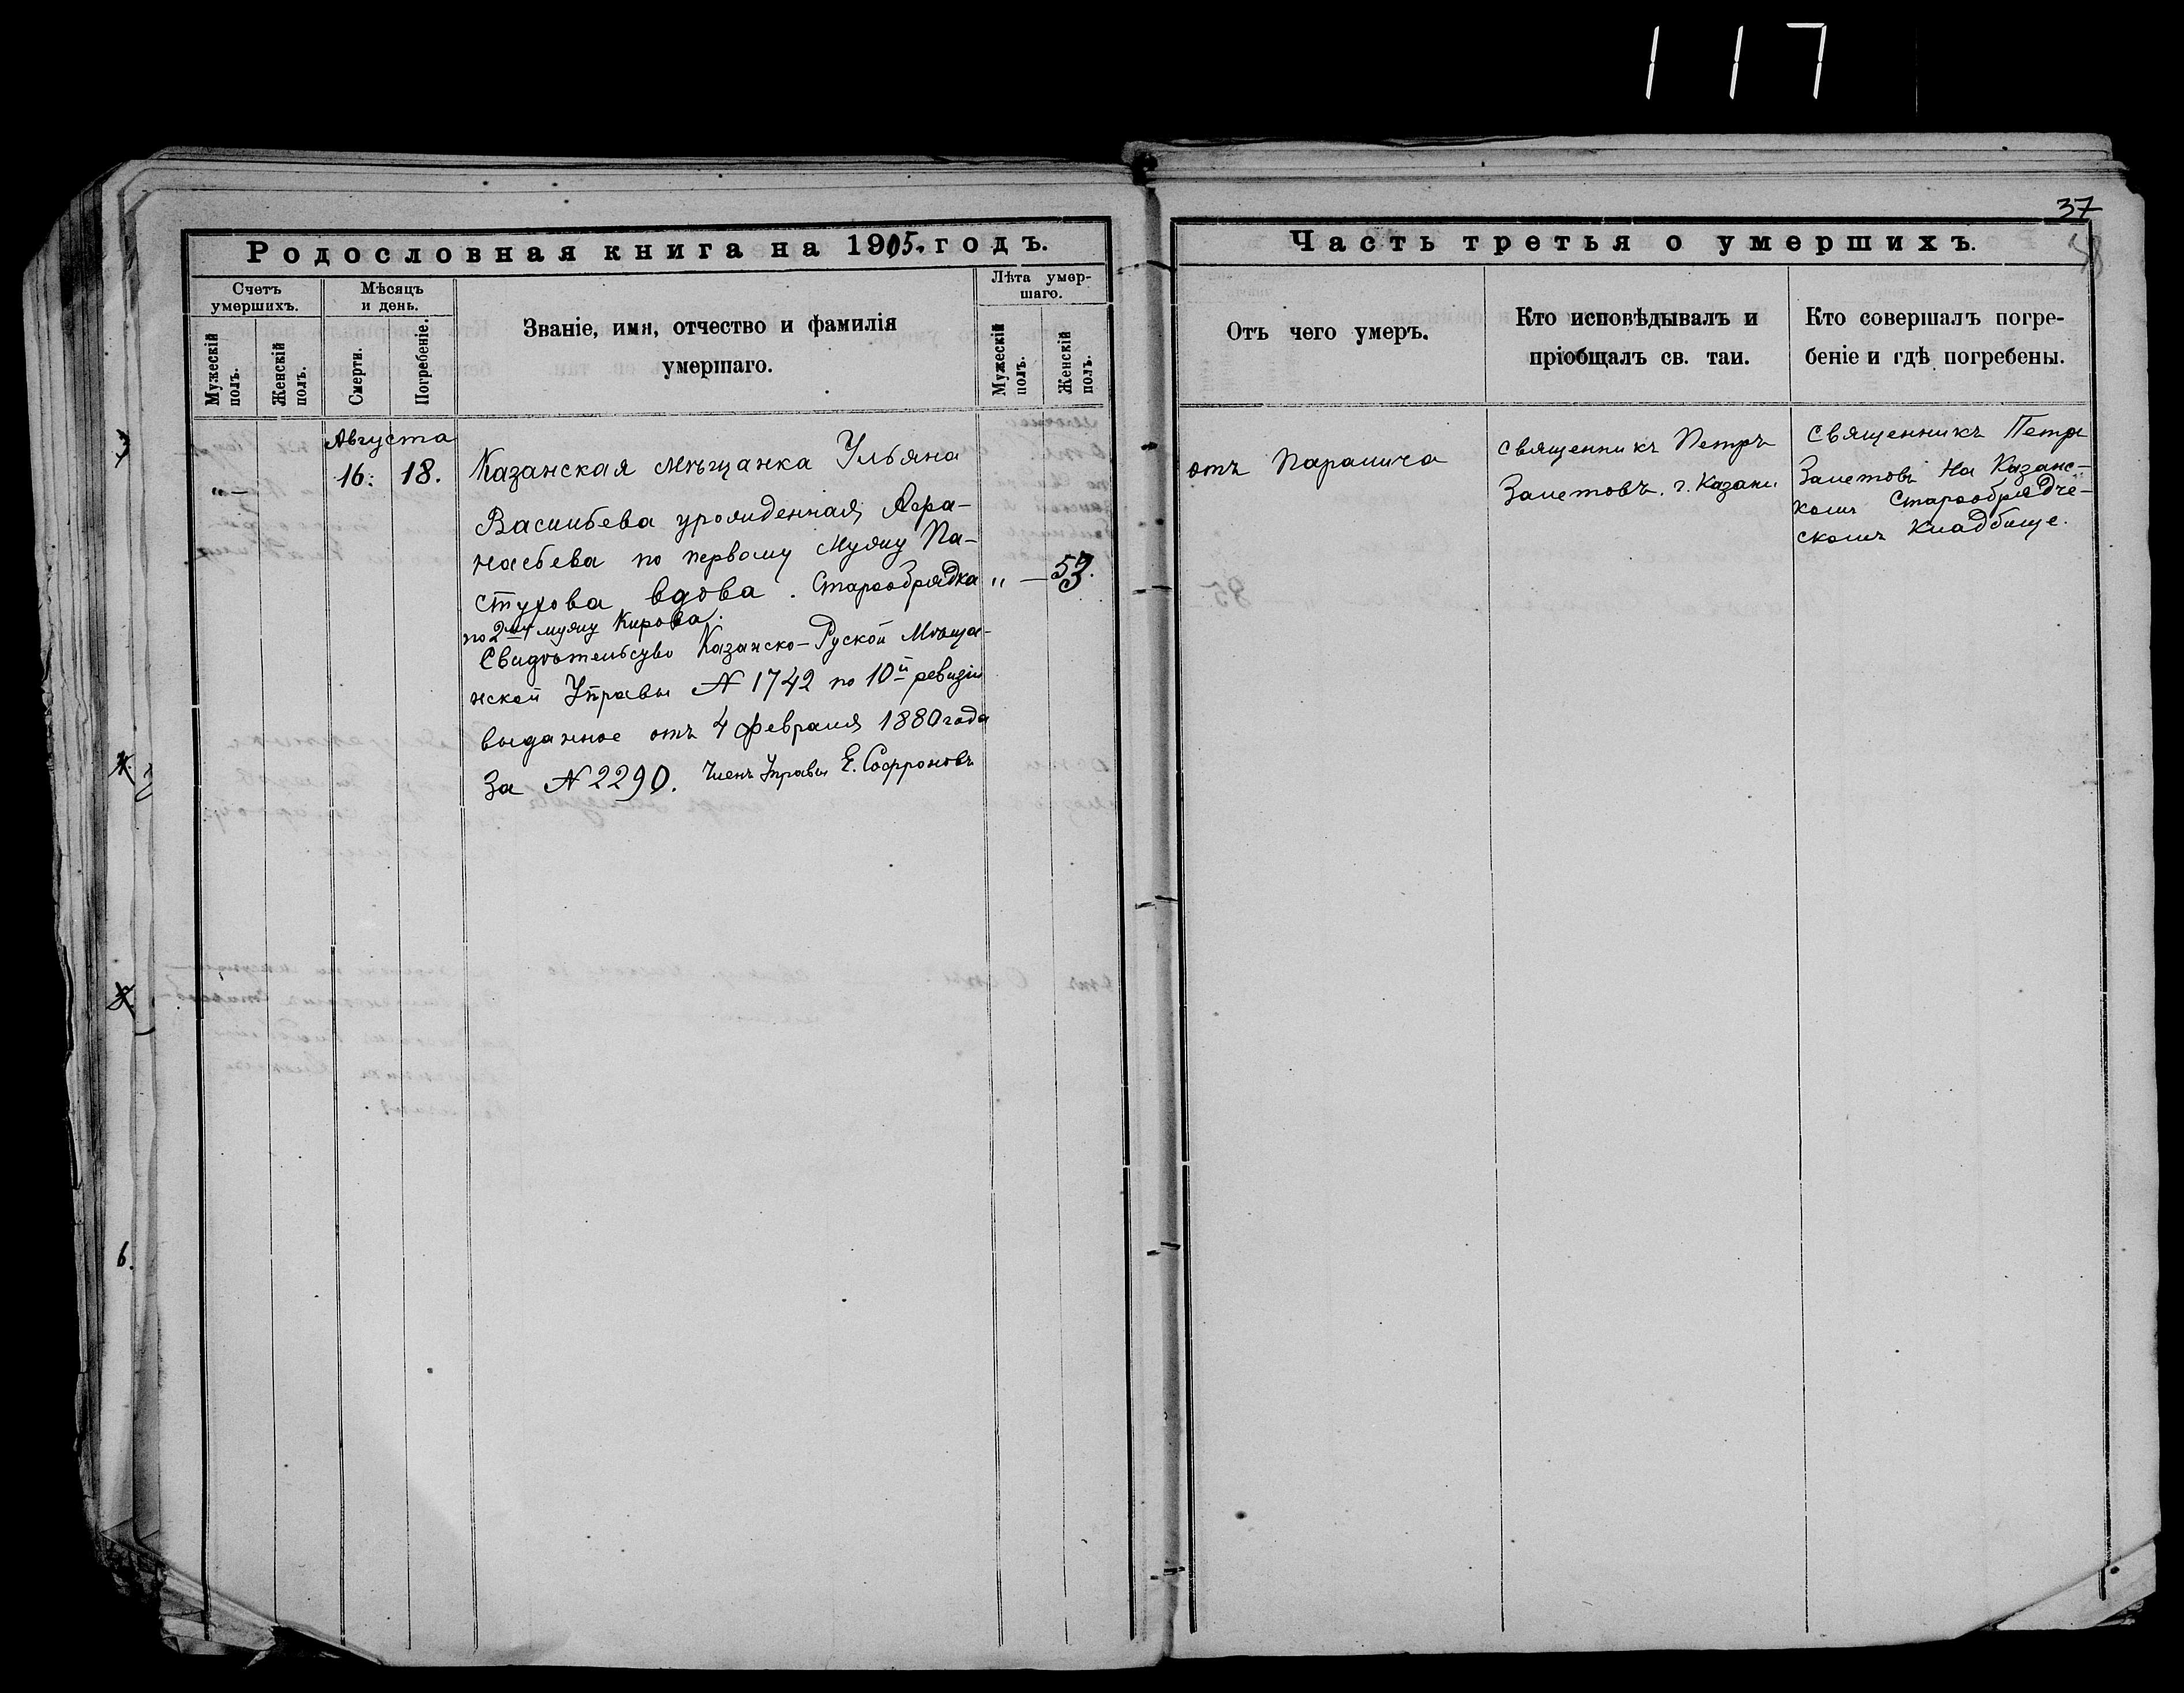 117
37
Родословная книга на 1905 годъ.
Часть третья о умершихъ.
Счетъ умершихъ.
Мужескій полъ.
Женскій полъ.
Мѣсяцъ и день.
Смерти.
Погребеніе.
Званіе, имя, отчество и фамилія
умершаго.
Лѣта умер-
шаго.
Мужескій полъ.
Женскій полъ.
Отъ чего умеръ.
Кто исповѣдывалъ и
пріобщалъ св. таи.
Кто совершалъ погре-
беніе и гдѣ погребены.
Августа
16. 18.
Казанская мѣщанка Ульяна
Васильева урожденная Афа-
насьева по первому мужу Па-
стухова вдова. Старообрядка
по 2му мужу Кирова.
Свидѣтельсуво Казанско-Руской Мѣща-
нской Управы № 1742 по 10й ревизіи
выданное отъ 4 февраля 1880 года
За № 2290. Членъ Управы Е. Софроновъ
" — 53.
отъ Паралича
священникъ Петръ
Залетовъ. г. Казани
Священникъ Петръ
Залетовъ На Казанс-
комъ Старообрядче-
скомъ Кладбище.
6.